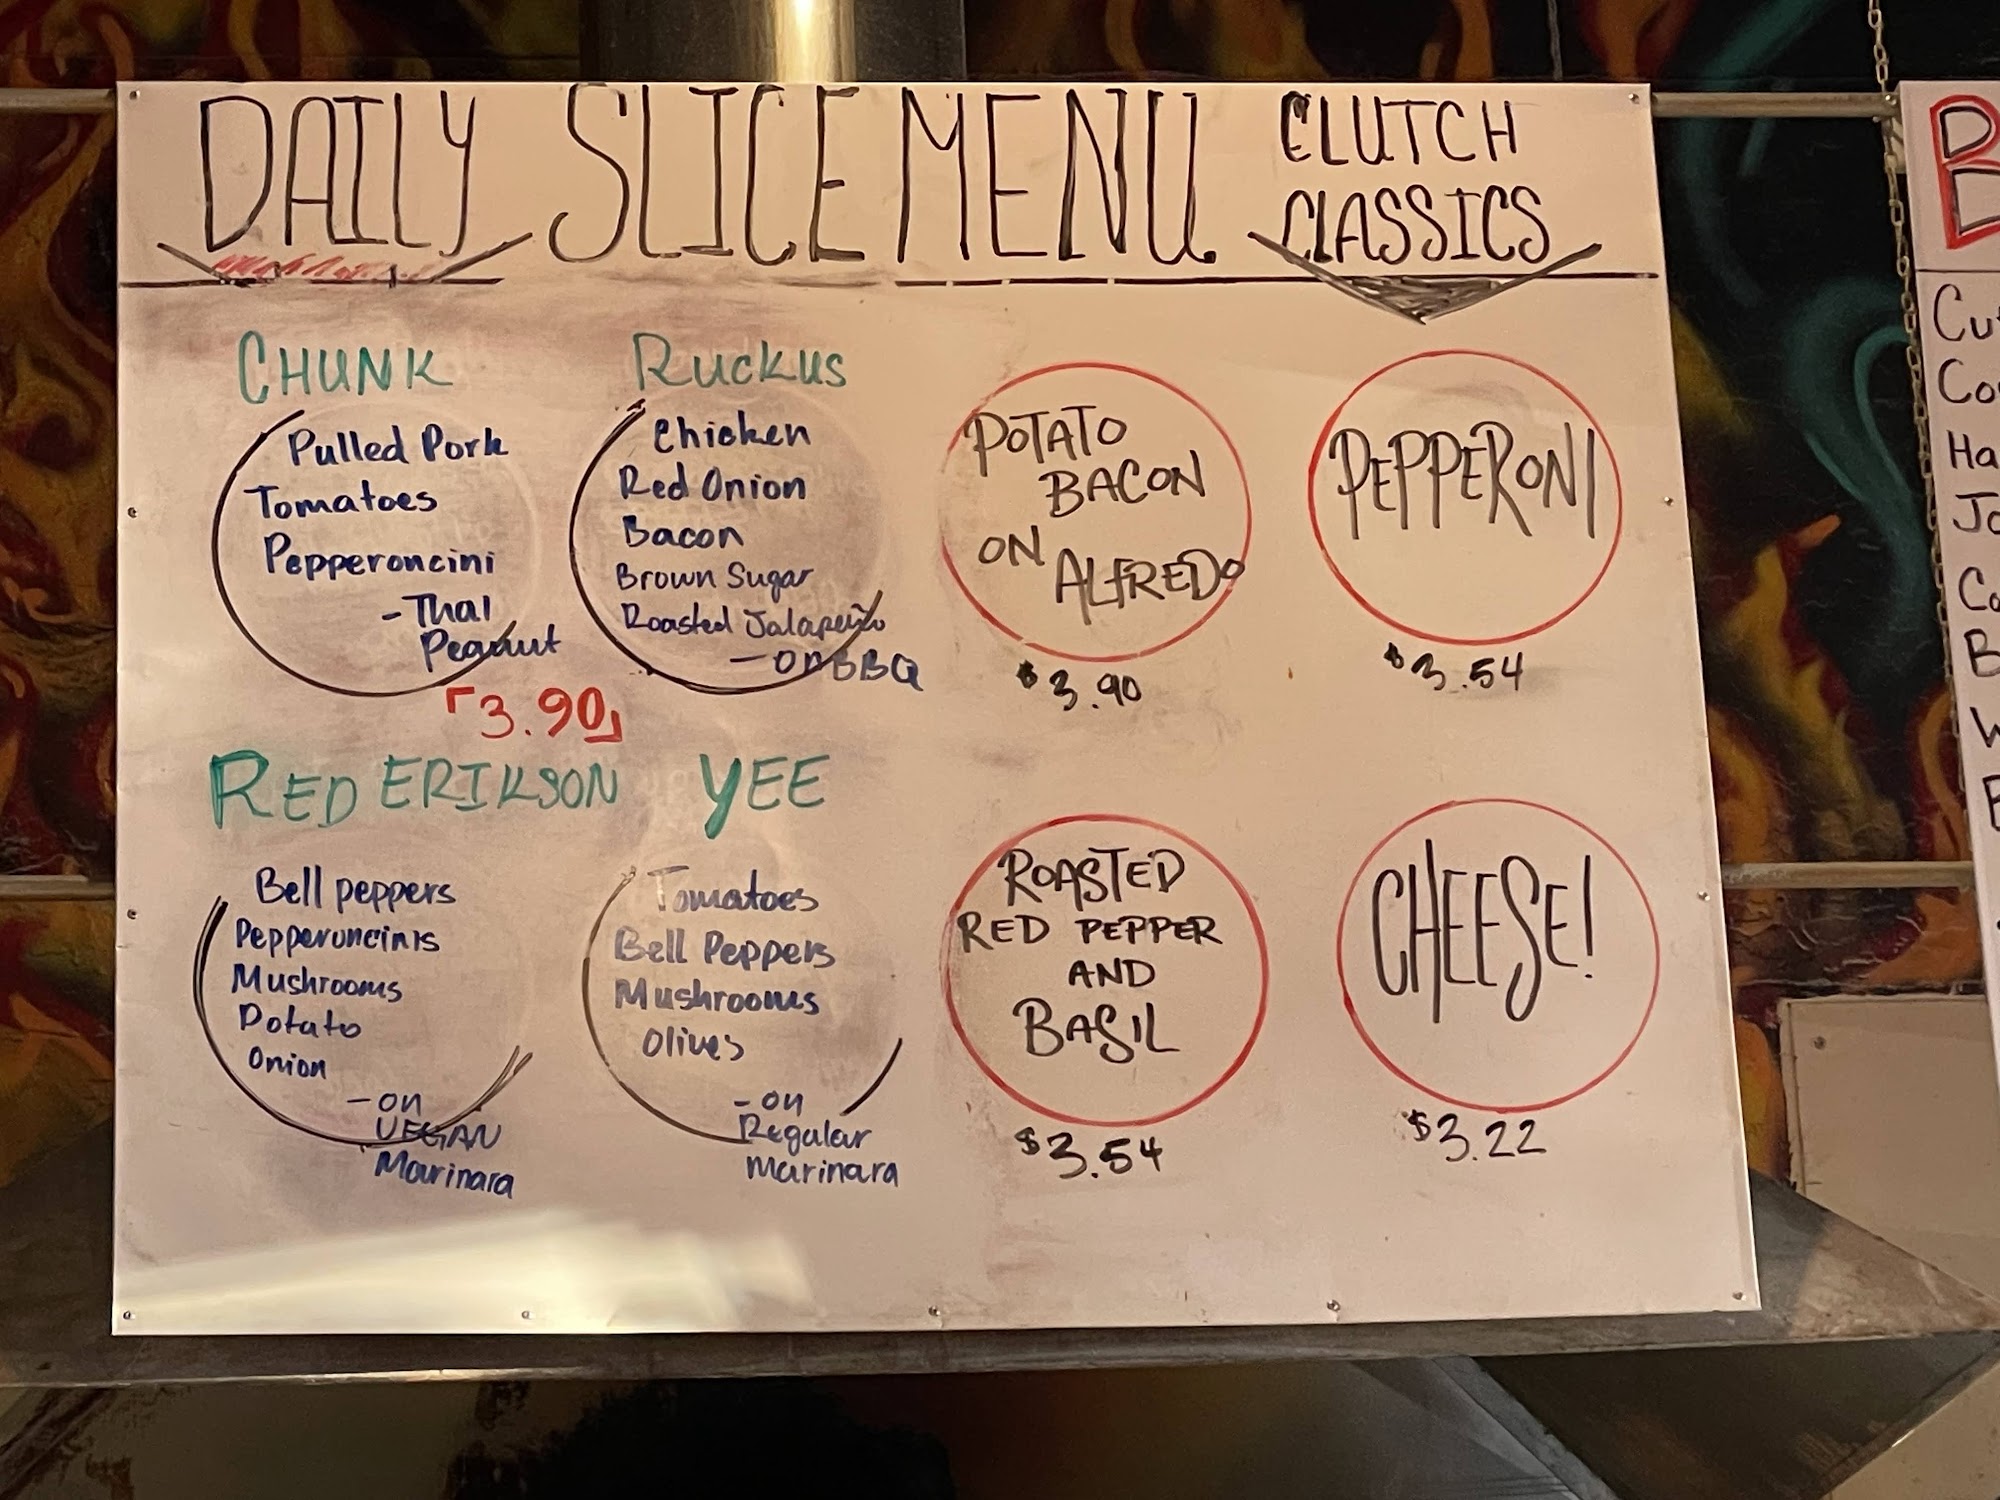 DAILY SLICE MENU
CLUTCH
CLASSICS
CHUNK
Pulled Pork
Tomatoes
Pepperoncini
- Thai
Peanut
Ruckus
Chicken
Red Onion
Bacon
Brown Sugar
Roasted Jalapeño
- on BBQ
「3.90」
RED ERIKSON
Bell peppers
Pepperoncinis
Mushrooms
Potato
Onion
- on
VEGAN
Marinara
YEE
Tomatoes
Bell Peppers
Mushrooms
Olives
- on
Regular
Marinara
POTATO
BACON
ON
ALFREDO
$3.90
PEPPERONI
$3.54
ROASTED
RED PEPPER
AND
BASIL
$3.54
CHEESE!
$3.22